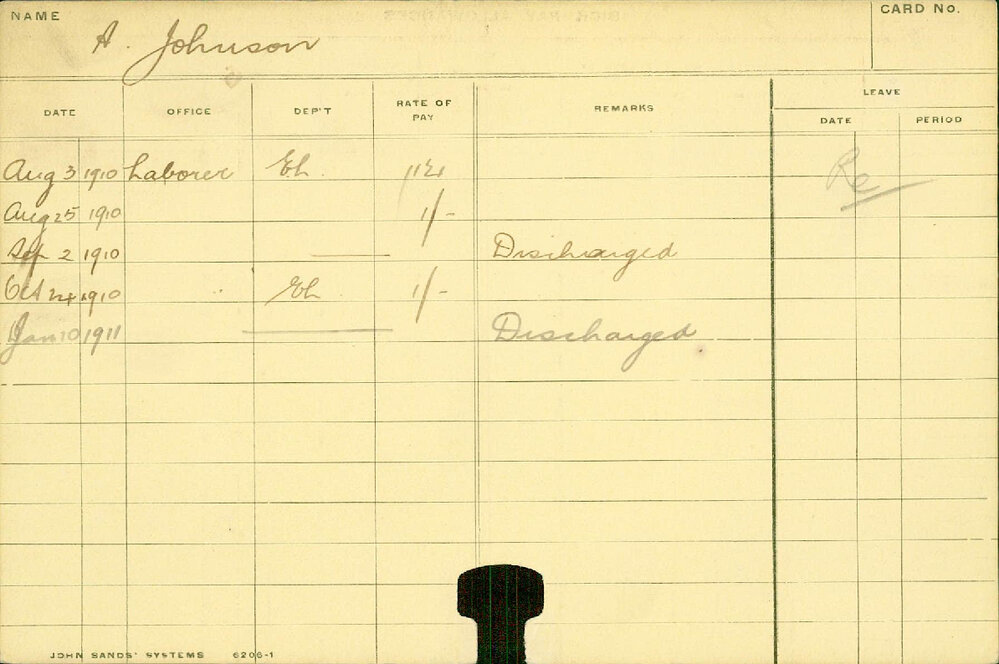 NAME
CARD NO.
A. Johnson
DATE OFFICE DEP'T RATE OF PAY REMARKS LEAVE
DATE PERIOD
Aug 3 1910 Laborer Eh
Re
Aug 25 1910 1/-
Sep 2 1910 Discharged
Oct 24 1910 " Eh 1/-
Jan 10 1911 Discharged
JOHN SANDS' SYSTEMS 6206-1